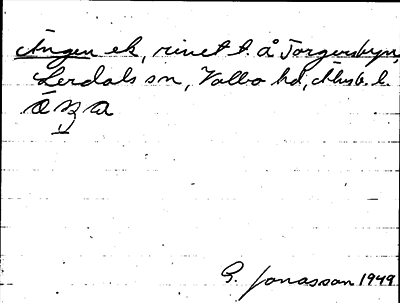 Ängen ek, rivet t. å Torgersbyn,
Lerdals sn, Valbo hd, Älvsb. l.
G. Jonasson 1949